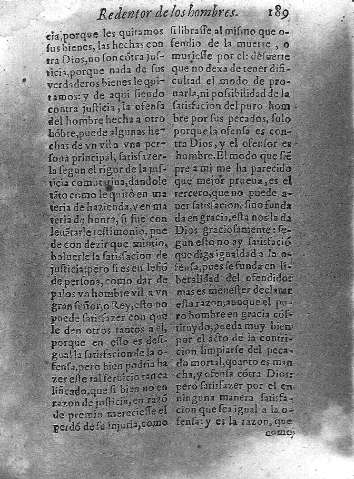 Redentor de los hombres. 189
cia, porque les quitamos
sus bienes, las hechas con
tra Dios, no son cótra jus-
ticia, porque nada de sus
verdaderos bienes le qui-
tamos: y de aqui siendo
contra justicia, la ofensa
del hombre hecha a otro
hóbre, puede algunas he-
chas de vn vil a vna per-
sona principal, satisfazer-
la segun el rigor de la jus-
ticia comutatiua, dandole
táto como le quitó en ma
teria de hazienda, y en ma
teria de honra, si fue con
leuátarle testimonio, pue
de con dezir que mintio,
boluerle la satisfacion de
justicia: pero si es en lesió
de persona, como dar de
palos vn hombre vil a vn
gran señor, o Rey, esto no
puede satisfazer con que
le den otros tantos a el,
porque en esto es desi-
gual la satisfacion de la o-
fensa, pero bien podria ha
zer este tal seruicio tan ca
lificado, que si bien no en
razon de justicia, en razó
de premio mereciesse el
perdó de su injuria, como
si librasse al mismo que o-
fendio de la muerte, o
muriesse por el: desuerte
que no dexa de tener difi-
cultad el modo de pro-
narla, ni posibilidad de la
satisfacion del puro hom-
bre por sus pecados, solo
porque la ofensa es con-
tra Dios, y el ofensor es
hombre. El modo que siē
pre a mi me ha parecido
que mejor prueua, es el
tercero, que no puede a-
uer satisfacion, sino funda
da en gracia, esta nos la da
Dios graciosamente: se-
gun esto no ay satisfació
que diga igualdad a la o-
fensa, pues se funda en li-
beralidad del ofendido:
mas es menester declarar
esta razon, aunque el pu-
ro hombre en gracia cós-
tituydo, pueda muy bien
por el acto de la contri-
cion limpiarse del peca-
do mortal, quanto es man
cha, y ofensa cótra Dios:
pero satisfazer por el en
ninguna manera satisfa-
cion que sea igual a la o-
fensa: y es la razon, que
como,